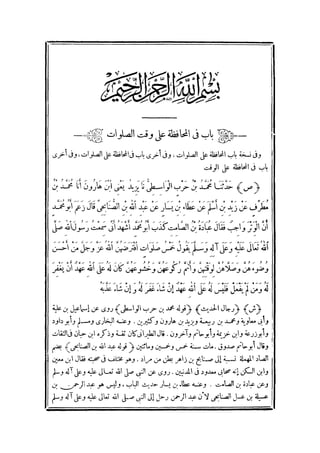 بسم الله الرحمن الرحيم
باب فى المحافظة على وقت الصلوات
وفى نسخة باب المحافظة على الصلوات ، وفى أخرى باب فى المحافظة على الصلوات ، وفى أخرى
باب فى المحافظة على الوقت
﴿ص﴾ حَدَّثَنَا مُحَمَّدُ بْنُ حَرْبٍ الْوَاسِطِىُّ نَا يَزِيدُ يَعْنِى ابْنَ هَارُونَ أَنَا مُحَمَّدُ بْنُ
مُطَرِّفٍ عَنْ زَيْدِ بْنِ أَسْلَمَ عَنْ عَطَاءِ بْنِ يَسَارٍ عَنْ عَبْدِ اللهِ بْنِ الصُّنَابِحِىِّ قَالَ زَعَمَ أَبُو مُحَمَّدٍ
أَنَّ الْوِتْرَ وَاجِبٌ فَقَالَ عُبَادَةُ بْنُ الصَّامِتِ كَذَبَ أَبُو مُحَمَّدٍ أَشْهَدُ أَنِّى سَمِعْتُ رَسُولَ اللهِ صَلَّى
اللهُ تَعَالَى عَلَيْهِ وَعَلَى آلِهِ وَسَلَّمَ يَقُولُ خَمْسُ صَلَوَاتٍ افْتَرَضَهُنَّ اللهُ عَزَّ وَجَلَّ مَنْ أَحْسَنَ
وُضُوءَهُنَّ وَصَلَّاهُنَّ لِوَقْتِهِنَّ وَأَتَمَّ رُكُوعَهُنَّ وَخُشُوعَهُنَّ كَانَ لَهُ عَلَى اللهِ عَهْدٌ أَنْ يَغْفِرَ
لَهُ وَمَنْ لَمْ يَفْعَلْ فَلَيْسَ لَهُ عَلَى اللهِ عَهْدٌ إِنْ شَاءَ غَفَرَ لَهُ وَإِنْ شَاءَ عَذَّبَهُ
﴿ش﴾ ﴿رجال الحديث﴾ ﴿قوله محمد بن حرب الواسطى﴾ روى عن إسماعيل بن علية
وأبى معاوية ومحمد بن ربيعة ويزيد بن هارون وكثيرين . وعنه البخارى ومسلم وأبو داود
وأبو زرعة وابن خزيمة وأبو حاتم وآخرون . قال الطبرانى كان ثقة وذكره ابن حبان فى الثقات
وقال أبو حاتم صدوق . مات سنة خمس وخمسين ومائتين ﴿قوله عبد الله بن الصنابحى﴾ بضم
الصاد المهملة نسبة إلى صنابح بن زاهر بطن من مراد . وهو مختلف فى صحبته فقال ابن معين
وابن السكن إنه صحابى معدود فى المدنيين . روى عن النبى صلى الله تعالى عليه وعلى آله وسلم
وعن عبادة بن الصامت . وعنه عطاء بن يسار حديث الباب ، وليس هو عبد الرحمن بن
عسيلة بن عسل الصنابحى لأن عبد الرحمن رحل إلى النبى صلى الله تعالى عليه وعلى آله وسلم